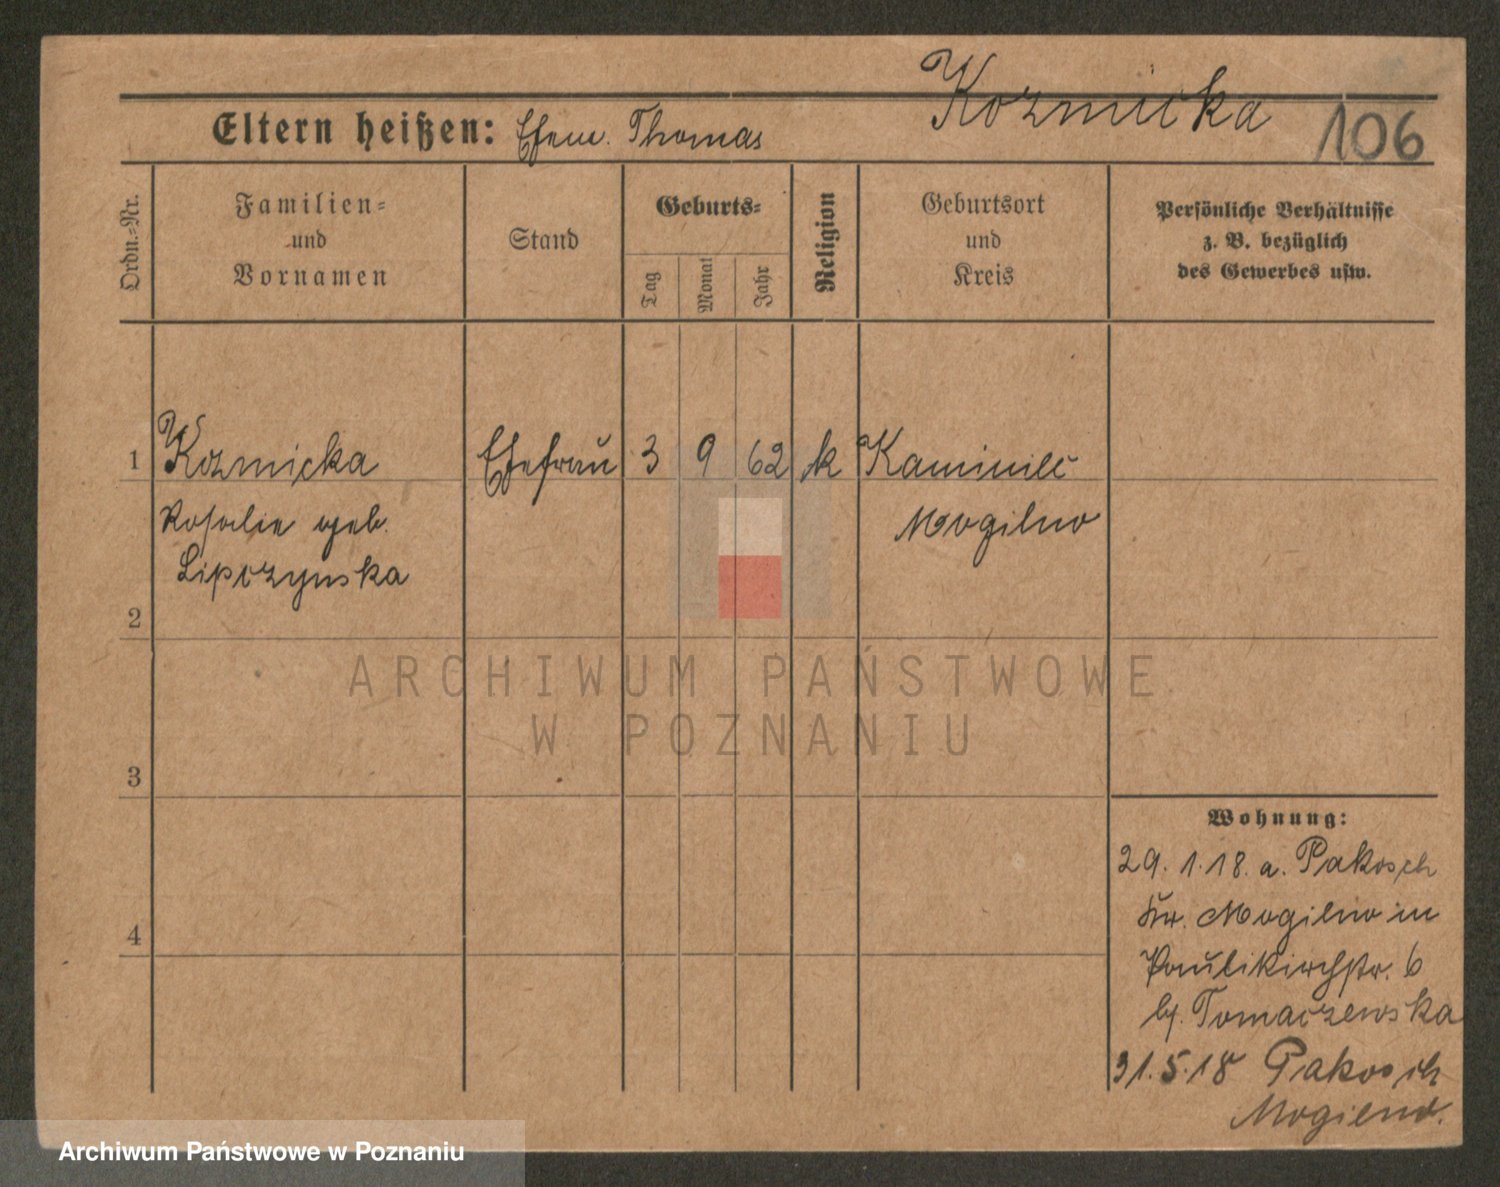 Kozmicka
Eltern heißen: Ehem. Thomas
106
Ordn.-Nr.
Familien-
und
Vornamen
Stand
Geburts-
Tag
Monat
Jahr
Religion
Geburtsort
und
Kreis
Persönliche Verhältnisse
z. B. bezüglich
des Gewerbes usw.
1 Kozmicka Ehefrau 3 9 62 k Kaminiec
Rosalie geb. Mogilno
Lipczynska
2
3
4
Wohnung:
29.1.18. a. Pakosch
Kr. Mogilno in
Paulikirchstr. 6
bj. Tomaczewska
31.5.18 Pakosch
Mogilno.
ARCHIWUM PAŃSTWOWE
W POZNANIU
Archiwum Państwowe w Poznaniu